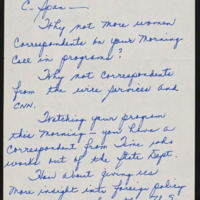 C-Span —
Why not more women
Correspondents on your Morning
Call in programs?
Why not correspondents
from the wire services and
CNN.
Watching your program
this morning — you have a
Correspondent from Time who
works out of the State Dept.
How about giving us
more insight into foreign policy